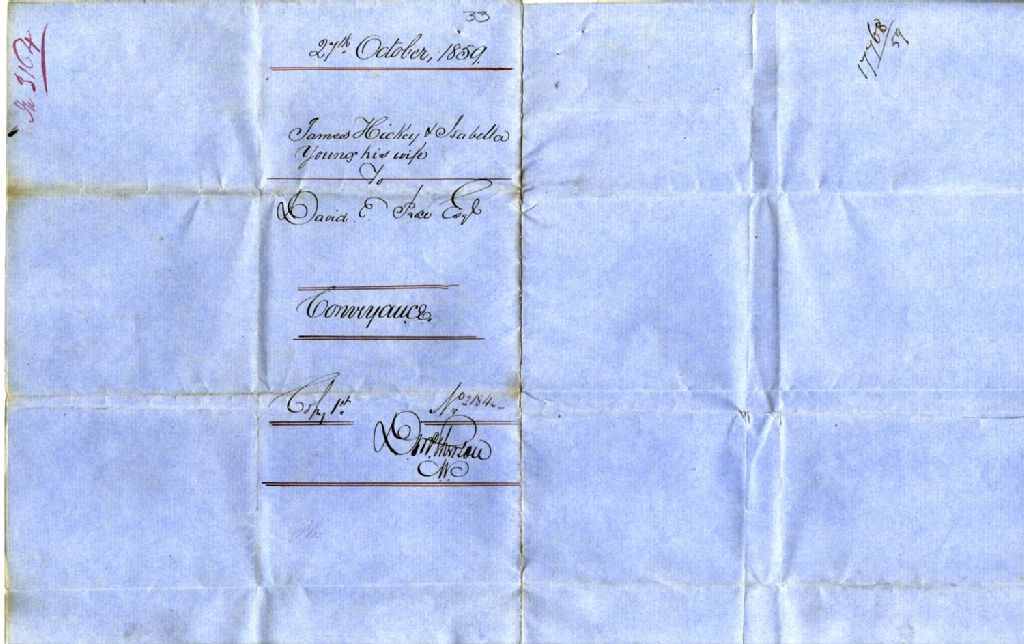 33
27th October, 1859.
James Hickey & Isabella
Young his wife
To
David E. Esq
Conveyance
Copy 1st. No 2184
N.P.
3164
17768/59